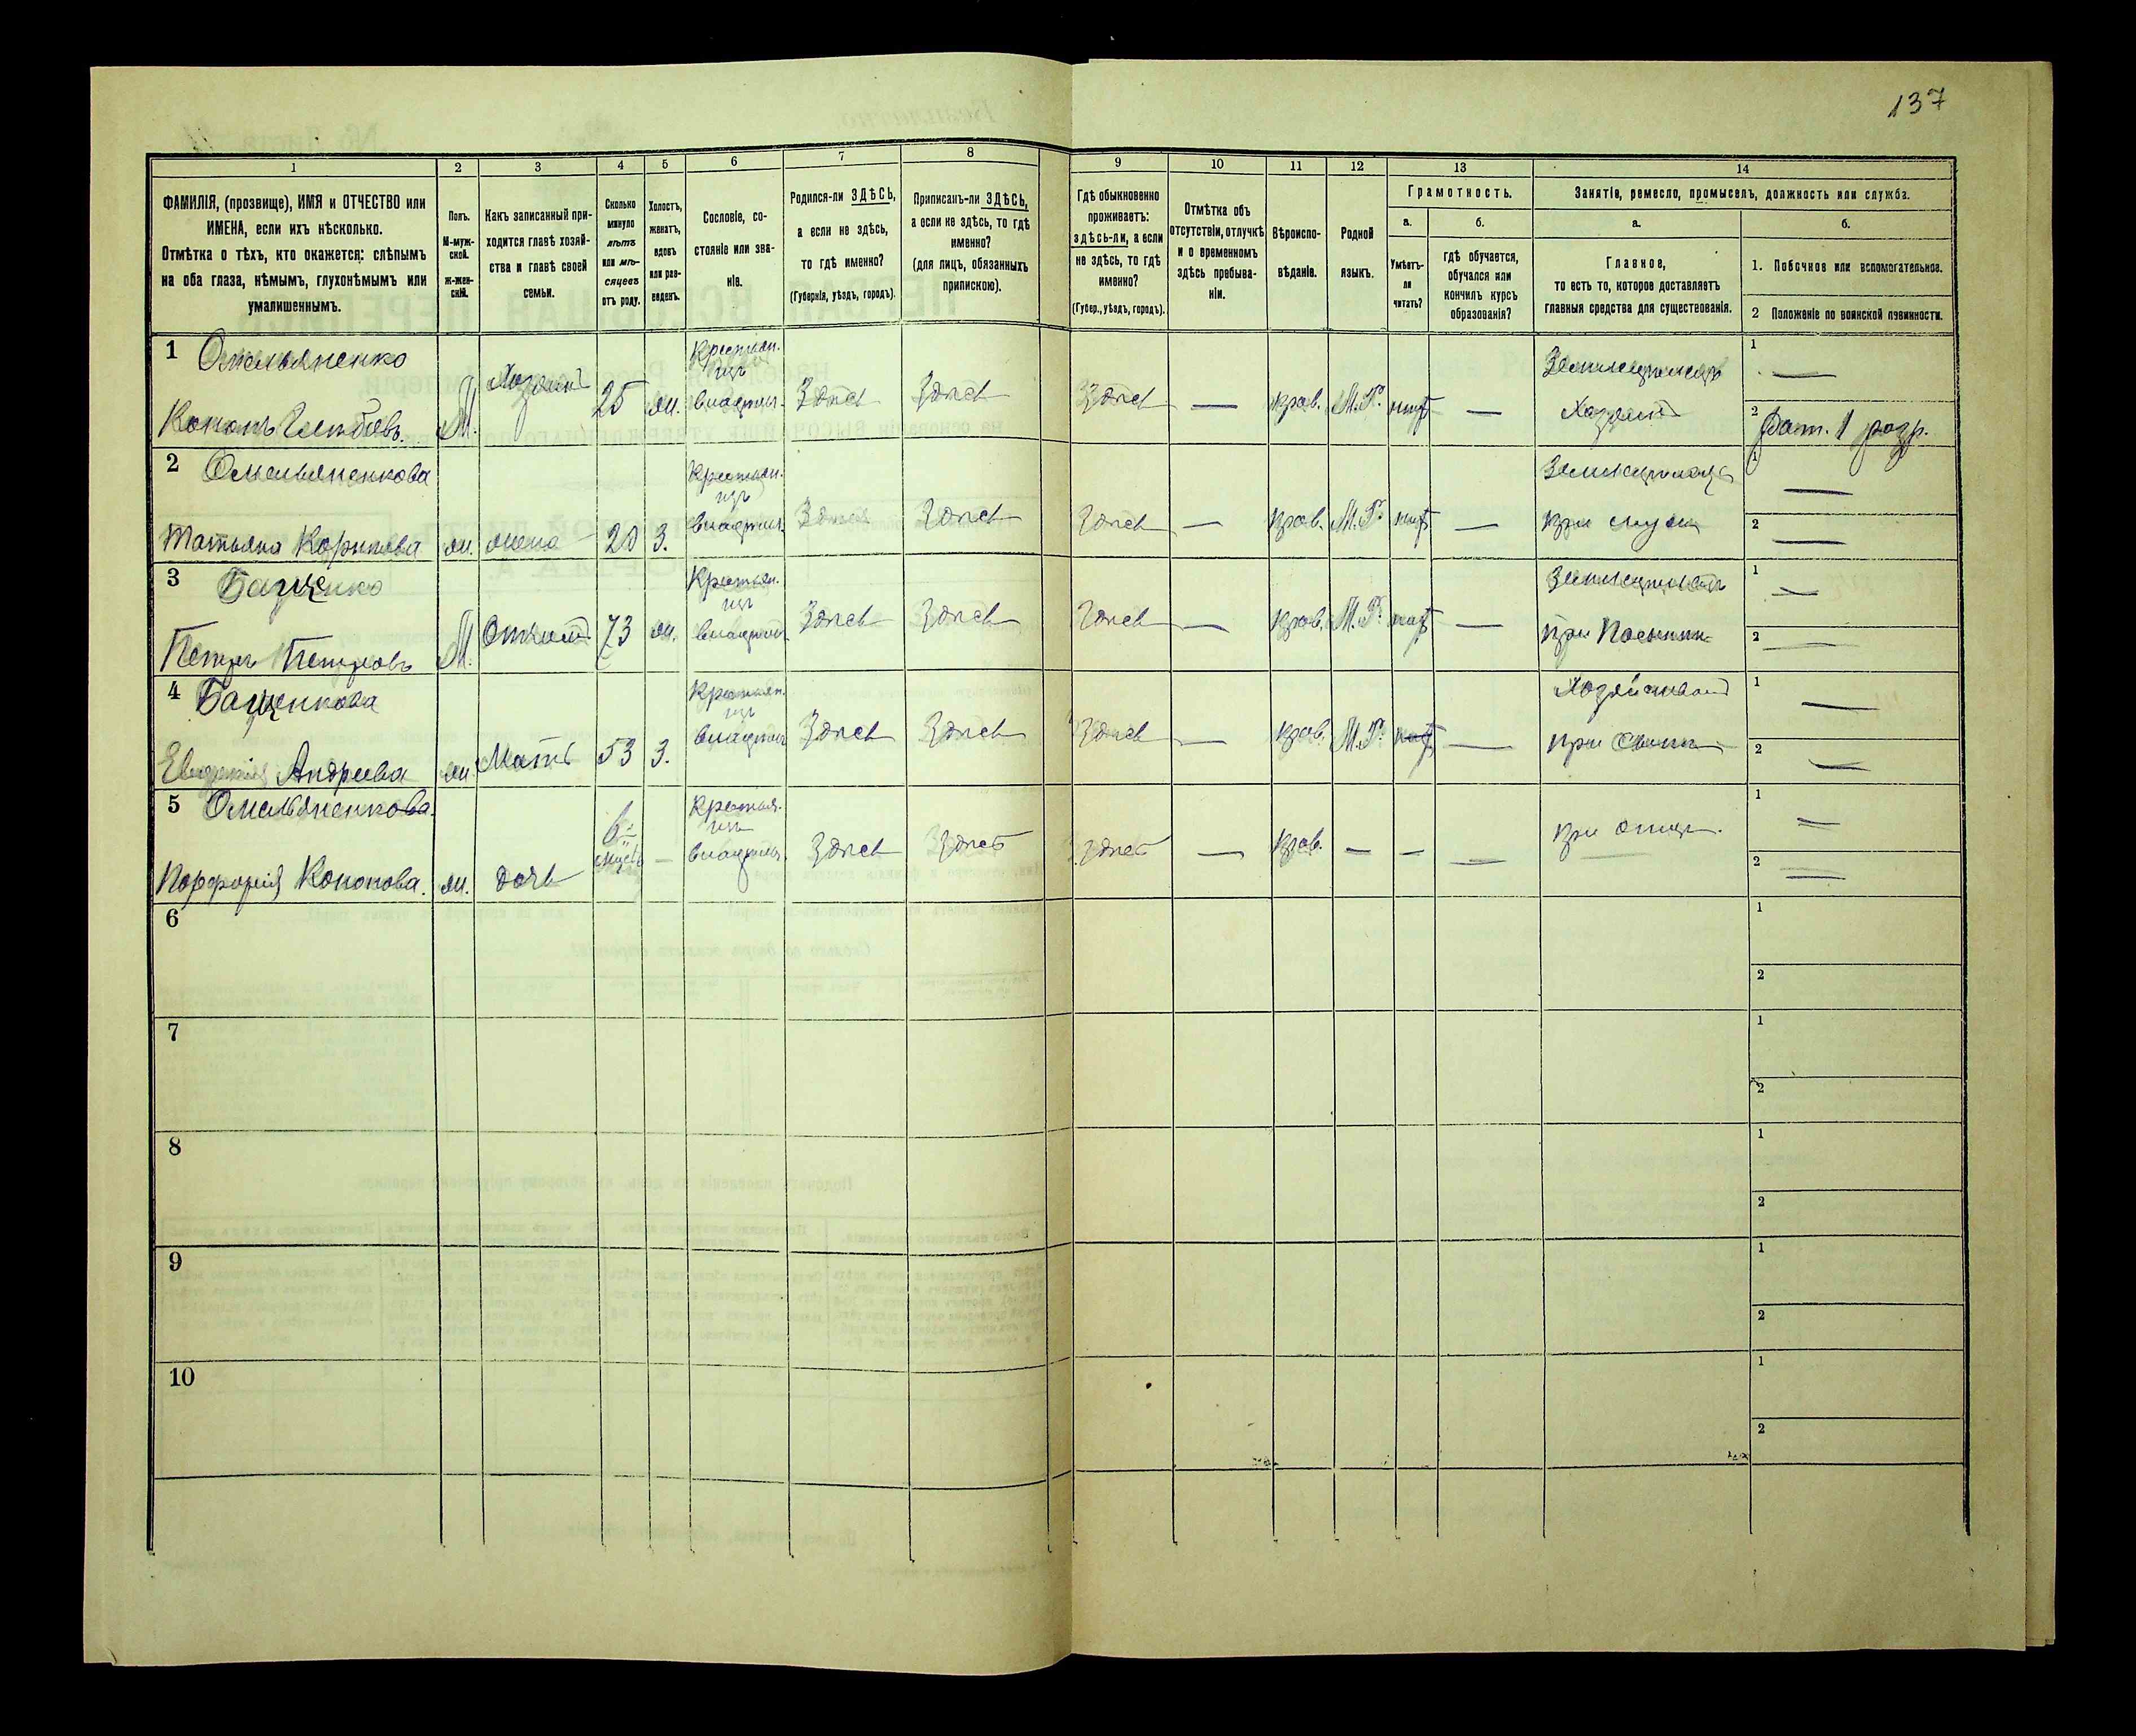 137
1 2 3 4 5 6 7 8 9 10 11 12 13 14
ФАМИЛІЯ, (прозвище), ИМЯ и ОТЧЕСТВО или
ИМЕНА, если ихъ нѣсколько.
Отмѣтка о тѣхъ, кто окажется: слѣпымъ
на оба глаза, нѣмымъ, глухонѣмымъ или
умалишеннымъ.
Полъ.
М-муж-
ской.
Ж-жен-
скій.
Какъ записанный при-
ходится главѣ хозяй-
ства и главѣ своей
семьи.
Сколько
минуло
лѣтъ
или мѣ-
сяцевъ
отъ роду.
Холостъ,
женатъ,
вдовъ
или раз-
веденъ.
Сословіе, со-
стояніе или зва-
ніе.
Родился-ли ЗДѢСЬ,
а если не здѣсь,
то гдѣ именно?
(Губернія, уѣздъ, городъ).
Приписанъ-ли ЗДѢСЬ,
а если не здѣсь, то гдѣ
именно?
(для лицъ, обязанныхъ
припискою).
Гдѣ обыкновенно
проживаетъ:
здѣсь-ли, а если
не здѣсь, то гдѣ
именно?
(Губер., уѣздъ, городъ).
Отмѣтка объ
отсутствіи, отлучкѣ
и о временномъ
здѣсь пребыва-
ніи.
Вѣроиспо-
вѣданіе.
Родной
языкъ.
Грамотность.
а.
Умѣетъ-
ли
читать?
б.
гдѣ обучается,
обучался или
кончилъ курсъ
образованія?
Занятіе, ремесло, промыселъ, должность или служба.
а.
Главное,
то есть то, которое доставляетъ
главныя средства для существованія.
б.
1. Побочное или вспомогательное.
2 Положеніе по воинской повинности.
1 Омельяненко
Кононъ Глѣбовъ. М. Хозяинъ 25 ж. Крестьян. изъ владѣльч. Здѣсь Здѣсь Здѣсь — прав. М.Р. нѣтъ — Земледѣлецъ Хозяинъ 1 —
2 Рат. 1 разр.
2 Омельяненкова
Татьяна Карпова ж. жена 20 З. Крестьян. изъ владѣльч. Здѣсь Здѣсь Здѣсь — прав. М.Р. нѣтъ — при мужѣ 1 —
2 —
3 Бащенко
Петръ Петровъ М. Отчимъ 73 ж. Крестьян. изъ владѣльч. Здѣсь Здѣсь Здѣсь — прав. М.Р. нѣтъ — при Пасынкѣ 1 —
2 —
4 Бащенкова
Евдокія Андреева ж. Мать 53 З. Крестьян. изъ владѣльч. Здѣсь Здѣсь Здѣсь — прав. М.Р. нѣтъ — при Сынѣ 1 —
2 —
5 Омельяненкова.
Порфирія Кононова. ж. дочь 6 мѣс. — Крестья. изъ владѣльч. Здѣсь Здѣсь Здѣсь — прав. — — — при отцѣ. 1 —
2 —
6 1
2
7 1
2
8 1
2
9 1
2
10 1
2